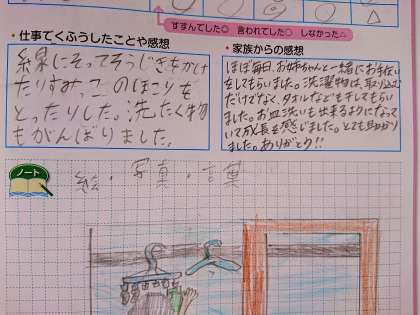 すすんでした◎ 言われてした○ しなかった△
・仕事でくふうしたことや感想
線にそってそうじきをかけ
たりすみっこのほこりを
とったりした。洗たく物
もがんばりました。
・家族からの感想
ほぼ毎日、お姉ちゃんと一緒にお手伝い
をしてもらいました。洗濯物は、取り込む
だけでなく、タオルなども干してもらい
ました。お皿洗いも出来るようになって
いて成長を感じました。とても助かり
ました。ありがとう!!
ノート
絵・写真・言葉